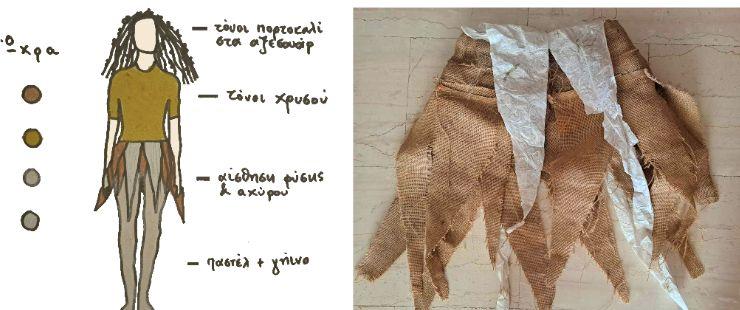 ο
- χρα
- τόνοι πορτοκαλί
στα αξεσουάρ
- τόνοι χρυσού
- αίσθηση φύσης
& αχύρου
- παστέλ + γήινο